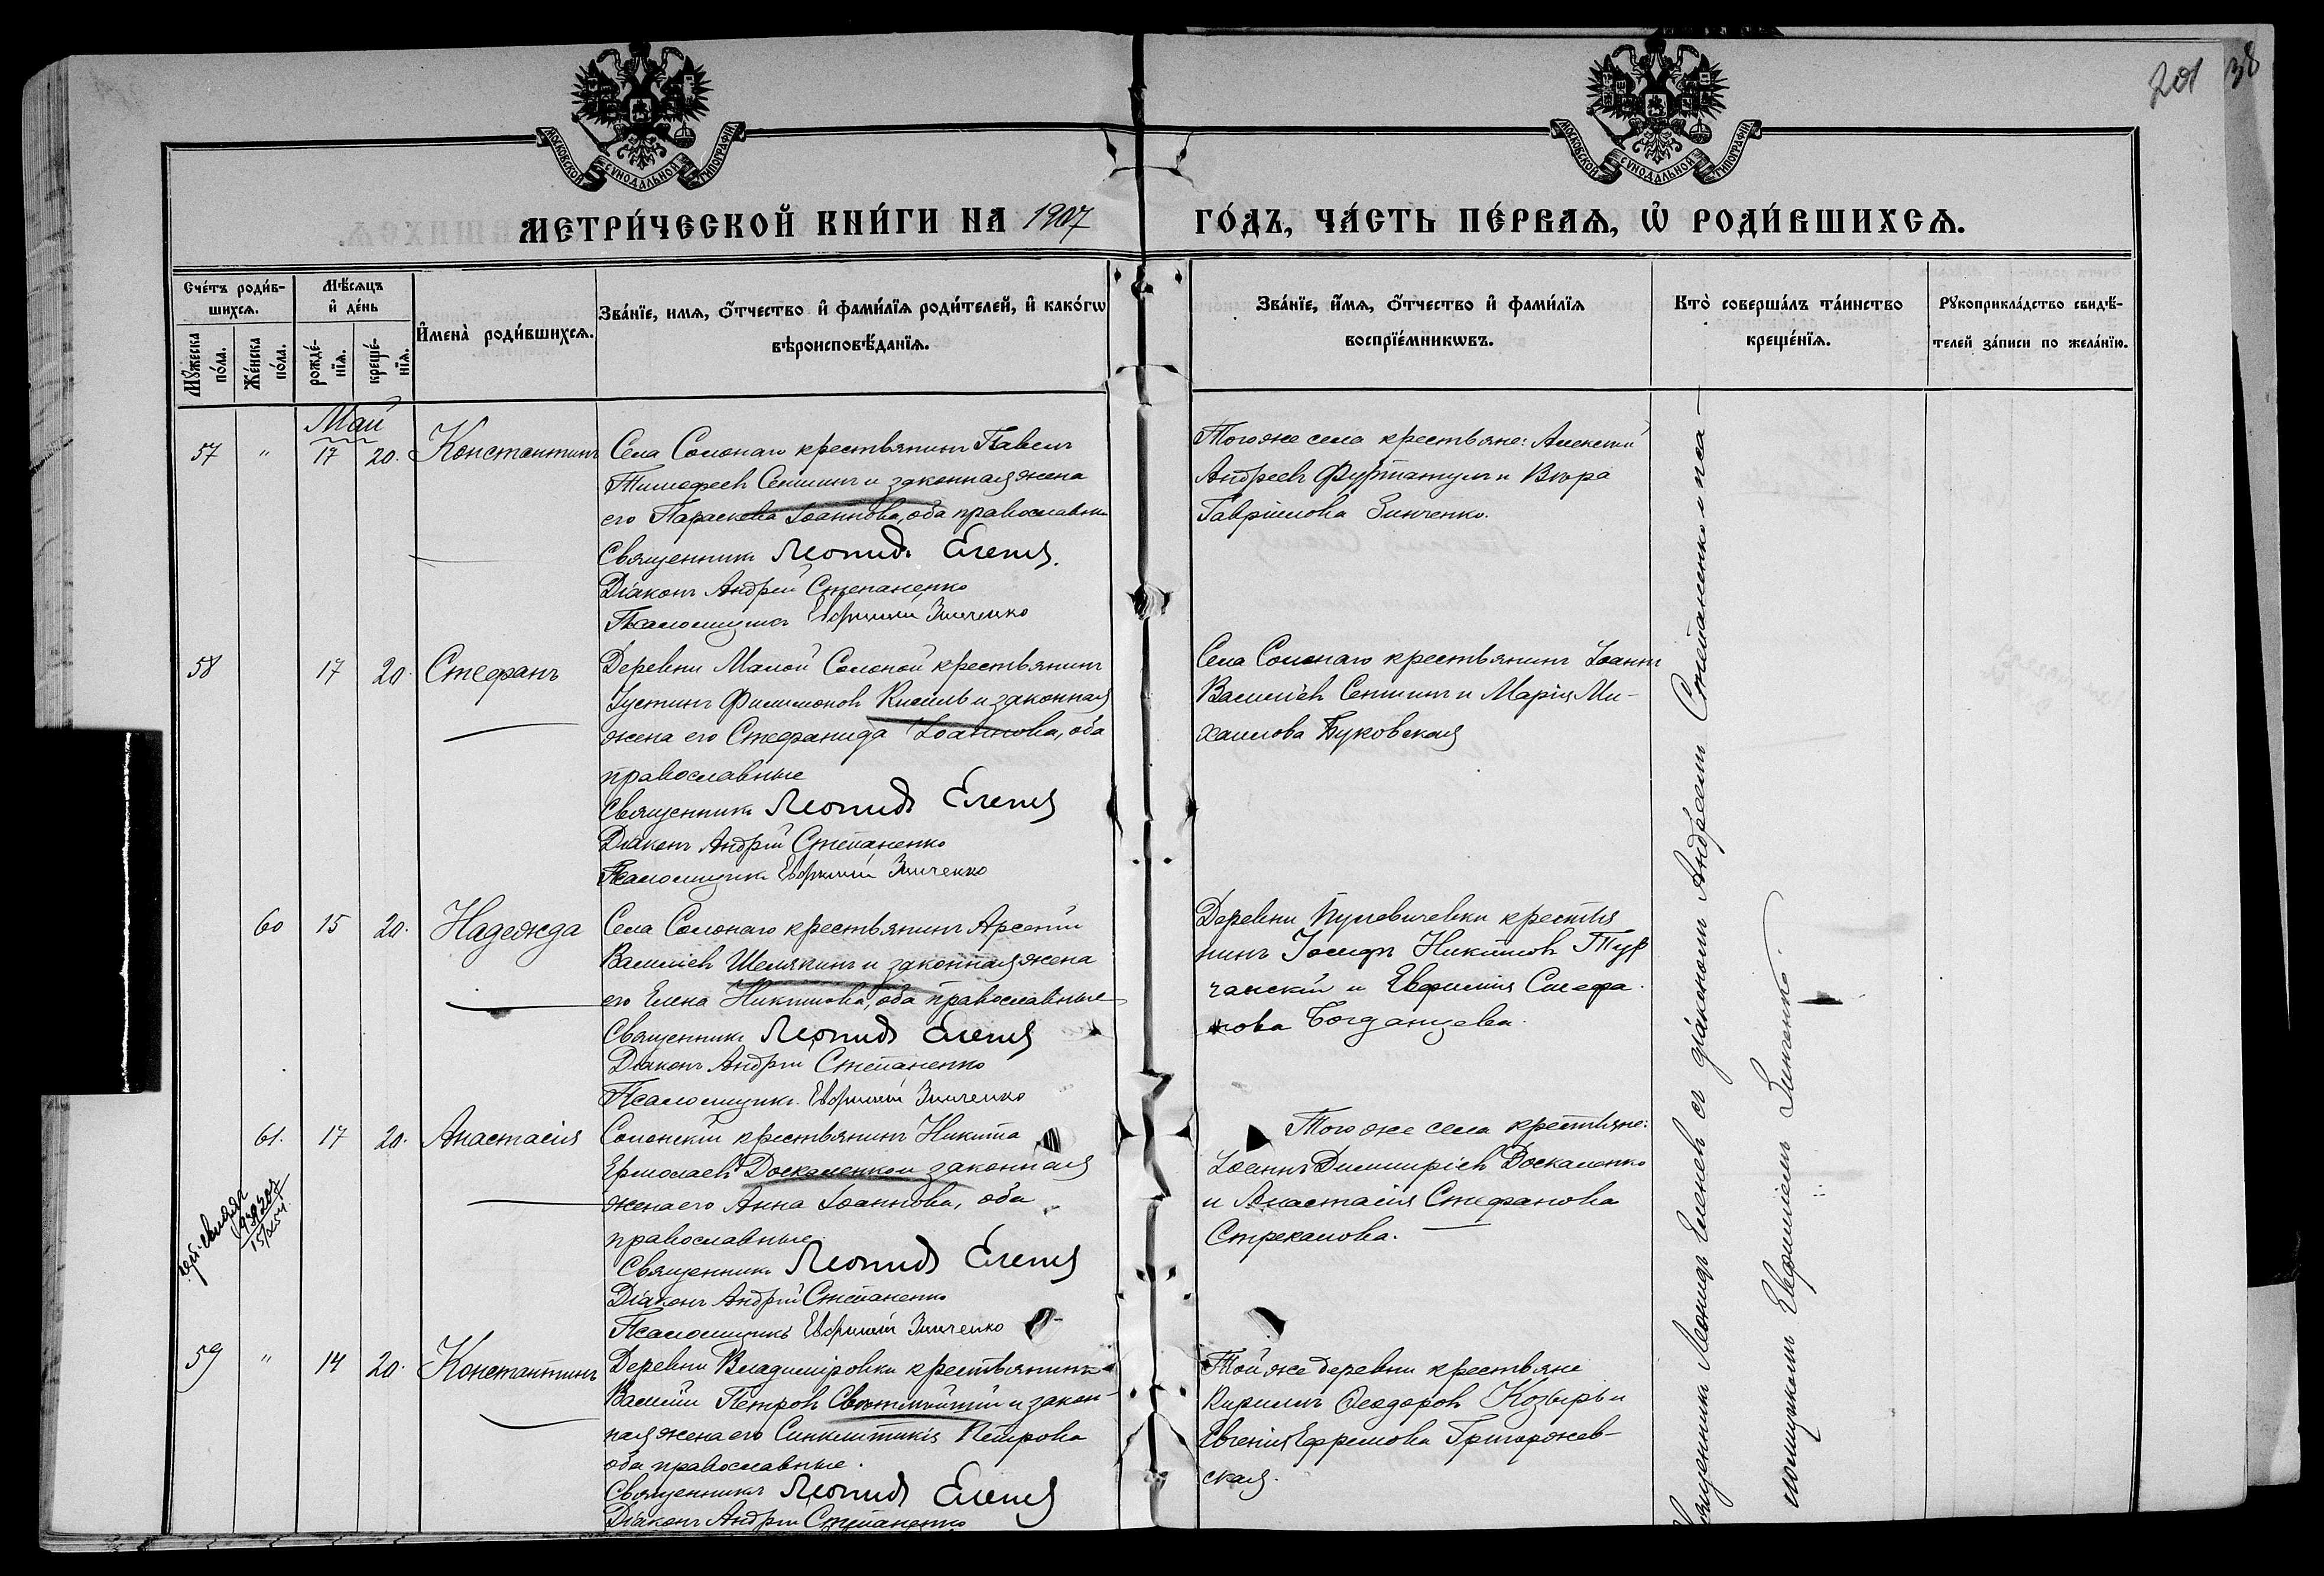 201 38
МОСКОВСКОЙ СѴНОДАЛЬНОЙ ТИПОГРАФІИ
МОСКОВСКОЙ СѴНОДАЛЬНОЙ ТИПОГРАФІИ
МЕТРИ́ЧЕСКОЙ КНИ́ГИ НА 1907 ГО́ДЪ, ЧА́СТЬ ПЕ́РВАѦ, Ѡ҆ РОДИ́ВШИХСѦ.
Сче́тъ роди́в-
шихсѧ.
Мꙋ́жеска по́ла.
Же́нска по́ла.
Мѣ́сѧцъ
и҆ де́нь
рожде́-
нїѧ.
креще́-
нїѧ.
И҆мена̀ роди́вшихсѧ.
Зва́нїе, имѧ, о҆́тчество и҆ фами́лїѧ роди́телей, и҆ како́гѡ
вѣроисповѣ́данїѧ.
Зва́нїе, и҆́мѧ, о҆́тчество и҆ фами́лїѧ
воспрїе́мникѡвъ.
Кто̀ соверша́лъ та́инство
креще́нїѧ.
Рꙋкоприкла́дство свидѣ́-
телей за́писи по жела́нїю.
Май
57 " 17 20. Константинъ
Села Солонаго крестьянинъ Павелъ
Тимофеевъ Сеншинъ и законная жена
его Параскева Іоаннова, оба православн
Священникъ Леонидъ Еленевъ
Діаконъ Андрей Степаненко
Псаломщикъ Евфимій Зинченко
Того же села крестьяне: Алексий
Андреевъ Фуртатулъ и Вѣра
Гавріилова Зинченко.
58 17 20. Стефанъ
Деревни Малой Солоной крестьянинъ
Іустинъ Филимоновъ Кисиль и законная
жена его Стефанида Іоаннова, оба
православные
Священникъ Леонидъ Еленевъ
Діаконъ Андрей Степаненко
Псаломщикъ Евфимій Зинченко
Села Солонаго крестьянинъ Іоаннъ
Василіевъ Сеншинъ и Марія Ми-
хаилова Буковская
60 15 20. Надежда
Села Солонаго крестьянинъ Арсеній
Василіевъ Шелякинъ и законная жена
его Елена Никитова, оба православные
Священникъ Леонидъ Еленевъ
Діаконъ Андрей Степаненко
Псаломщикъ Евфимій Зинченко
Деревни крестья
нинъ Іосифъ Никитовъ Тур
чанскій и Евфимія Стефа
нова Богданцева.
61. 17 20. Анастасія
Солонскій крестьянинъ Никита
Ермолаевъ Доскаленко и законная
жена его Анна Іоаннова, оба
православные.
Священникъ Леонидъ Еленевъ
Діаконъ Андрей Степаненко
Псаломщикъ Евфимій Зинченко
Того же села крестьяне:
Іоаннъ Димитріевъ Доскаленко
и Анастасія Стефанова
Стрекалова.
59 " 14 20. Константинъ
Деревни Владиміровки крестьянинъ
Василій Петровъ и закон-
ная жена его Синклитикія Петрова
оба православные.
Священникъ Леонидъ Еленевъ
Діаконъ Андрей Степаненко
Той же деревни крестьяне
Кириллъ Ѳеодоровъ Козырь и
Евгенія Ефремова Григоржев-
ская.
Священникъ Леонидъ Еленевъ съ діакономъ Андреемъ Степаненко и пса-
ломщикомъ Евфиміемъ Зинченко.